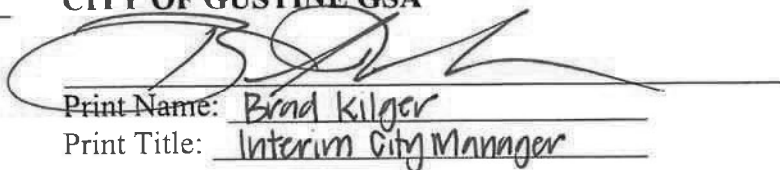 CITY OF GUSTINE GSA
Print Name: Brad Kilger
Print Title: Interim City Manager